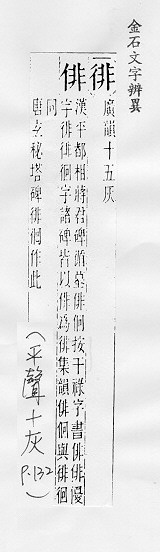 金石文字辨異
徘 廣韻十五灰
俳 漢平都相蔣君碑墓俳佪按干祿字書俳俳
字徘徘佪字諸碑皆以俳為徘集韻俳佪與徘徊
同
唐玄秘塔碑俳佪作此
(平聲十灰 P.132)